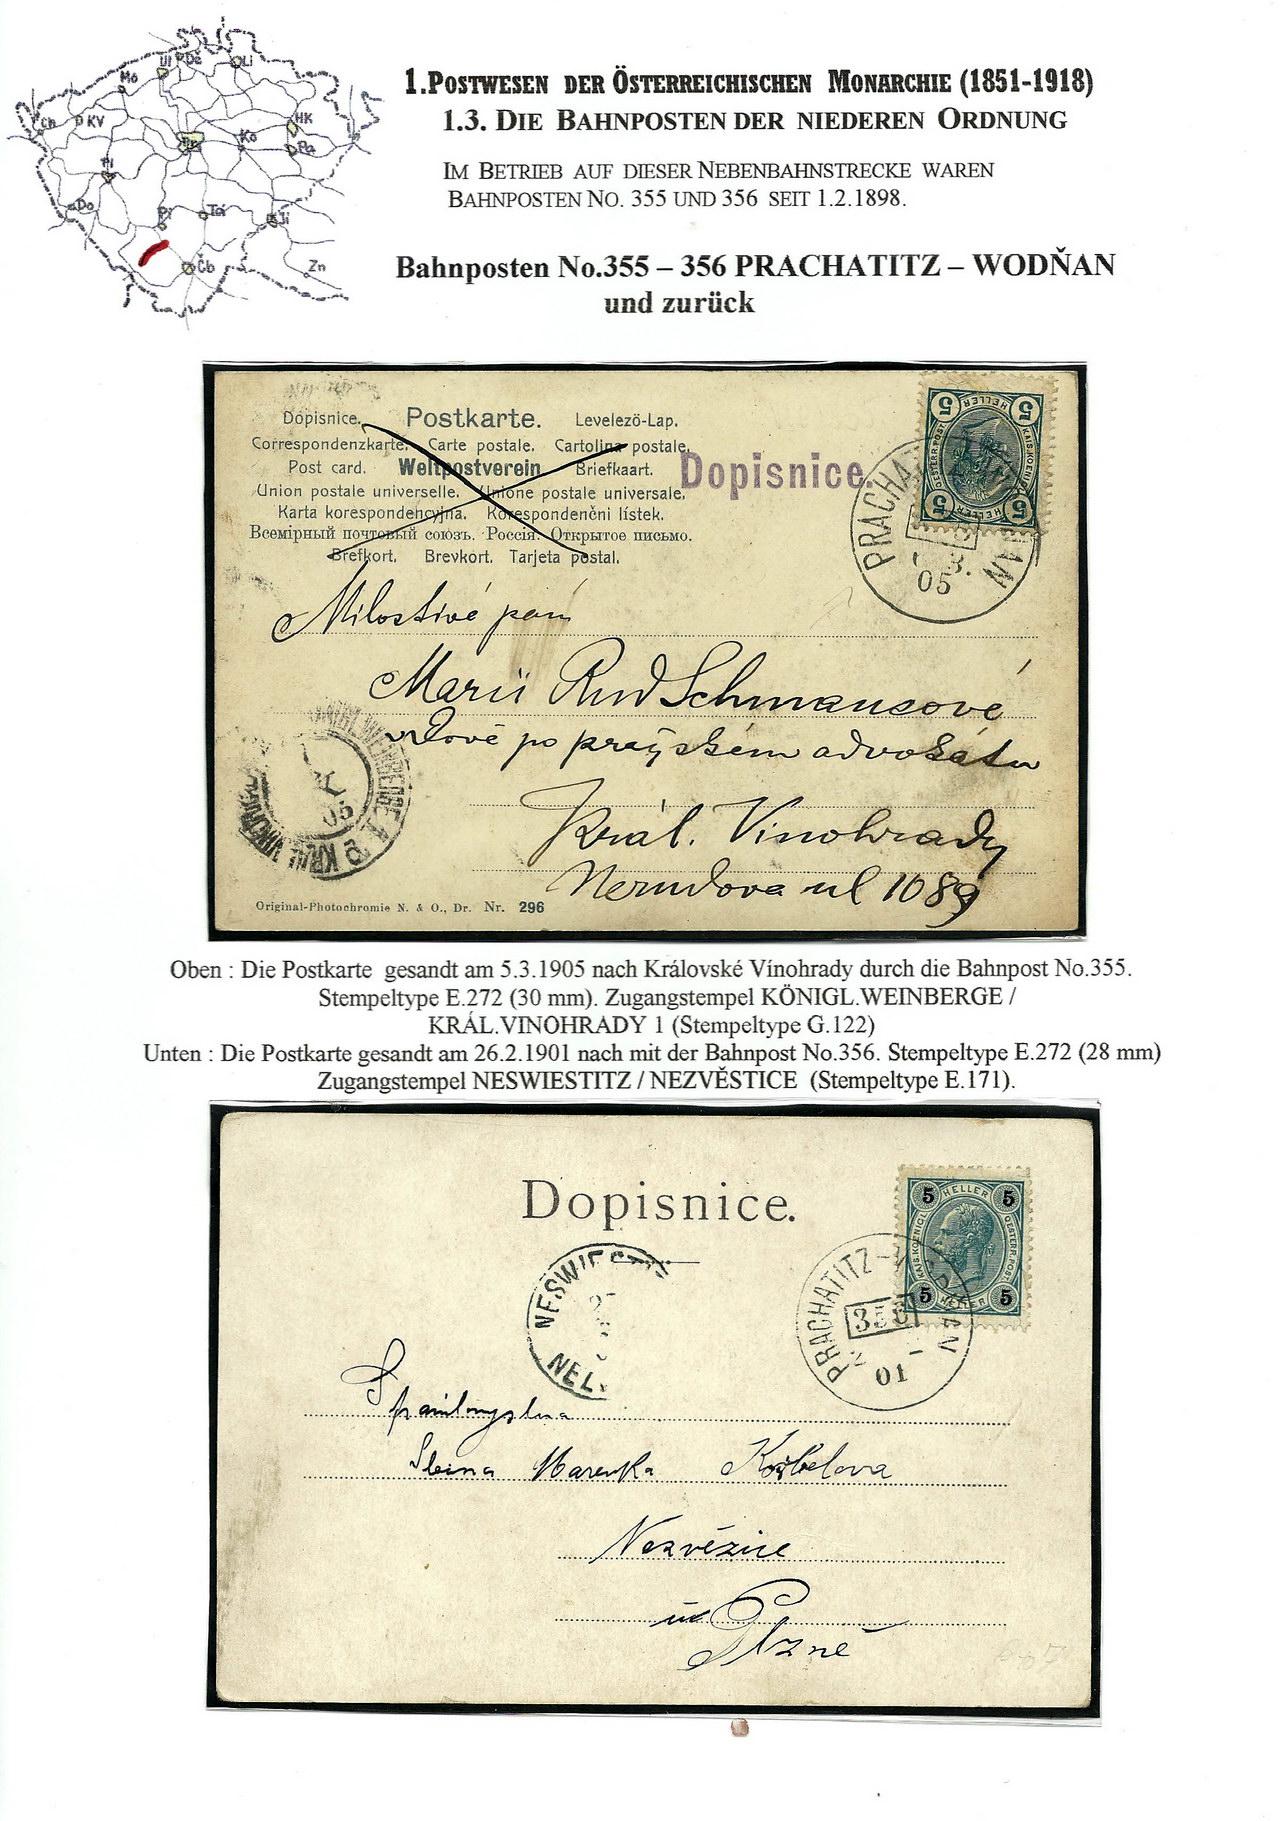 1.POSTWESEN DER ÖSTERREICHISCHEN MONARCHIE (1851-1918)
1.3. DIE BAHNPOSTEN DER NIEDEREN ORDNUNG
IM BETRIEB AUF DIESER NEBENBAHNSTRECKE WAREN
BAHNPOSTEN NO. 355 UND 356 SEIT 1.2.1898.
Bahnposten No.355 – 356 PRACHATITZ – WODŇAN
und zurück
Ul
Dě
Li
Mo
Ch
KV
HK
Ko
Pa
Pl
Do
Pi
Tá
Ji
Čb
Zn
Dopisnice. Postkarte. Levelező-Lap.
Correspondenzkarte. Carte postale. Cartolina postale.
Post card. Weltpostverein Briefkaart.
Union postale universelle. Unione postale universale.
Karta korespondencyjna. Korespondenční lístek.
Всемірный почтовый союзъ. Россія. Открытое письмо.
Brefkort. Brevkort. Tarjeta postal.
Dopisnice.
5 HELLER 5
KAIS. KOENIGL.
OESTERR. POST
5 HELLER 5
PRACHA
AN
05
Milostivé paní
Marii Rud Schmausové
vdově po pražském advokátu
Král. Vinohrady
Nerudova ul 1089
WEINBERGE 1
KRÁL. VINOHRADY
05
Original-Photochromie N. & O., Dr. Nr. 296
Oben : Die Postkarte gesandt am 5.3.1905 nach Královské Vínohrady durch die Bahnpost No.355.
Stempeltype E.272 (30 mm). Zugangstempel KÖNIGL.WEINBERGE /
KRÁL.VINOHRADY 1 (Stempeltype G.122)
Unten : Die Postkarte gesandt am 26.2.1901 nach mit der Bahnpost No.356. Stempeltype E.272 (28 mm)
Zugangstempel NESWIESTITZ / NEZVĚSTICE (Stempeltype E.171).
Dopisnice.
5 HELLER 5
KAIS. KOENIGL.
OESTERR. POST
5 HELLER 5
NESWIESTI
NE
PRACHATITZ-W
AN
356
01
Slečna Marenka
Nezvěsice
u Plzně